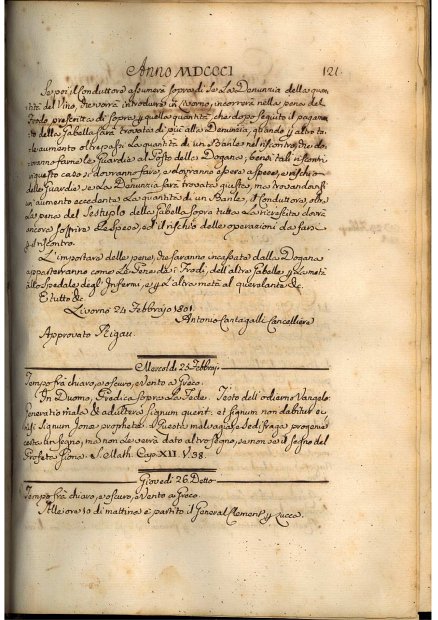 Anno MDCCCI 121
Se poi il Conduttore assumerà sopra di Se La Denunzia della quan
tità del Vino, che vorrà introdurre in Livorno, incorrerà nella pena del
Frodo prescritta di Sopra per quella quantità, che dopo seguito il pagamen
to della Gabella sarà trovata di più alla Denunzia, quando per altro ta-
le aumento oltrepassi La quantità di un Barile nel riscontro, che do
vranno farne le Guardie al Posto della Dogana; bensì tali riscontri
in questo caso si dovranno fare, e dovranno essere a spese, e rischio
delle Guardie, se La Denunzia sarà trovata giusta, ma trovandosi
un'aumento eccedente La quantità di un Barile, il Conduttore, oltre
La pena del Sestuplo della Gabella sopra tutta La dovrà
ancora soffrire Le spese, ed il rischio delle operazioni da farsi
per il riscontro.
L'importare delle pene, che saranno incassate dalla Dogana
apparterranno come Le Pene de i Frodi, dell'altre Gabelle per La metà
allo Spedale degl'Infermi, e per L'altra metà al querelante &c.
E tutto &c.
Livorno 24 Febbrajo 1801.
Antonio Cantagalli Cancelliere
Approvato Rigau.
Mercoldì 25 Febbrajo
Tempo frà chiaro, e oscuro, e Vento a Greco.
In Duomo, Predica sopra La Fede. Testo dell'odierno Vangelo:
Generatio mala et adultera signum querit: et signum non dabitur ei,
nisi Signum Jone prophete. Questa malvagia, e dedifraga progenie
cerca un segno, ma non le verrà dato altro segno, se non se il segno del
Profeta Giona. S. Matth. Cap. XII. V. 38.
Giovedì 26. Detto
Tempo frà chiaro, e oscuro, e Vento a Greco.
Alle ore 10 di mattina è partito il General Clement per Lucca.